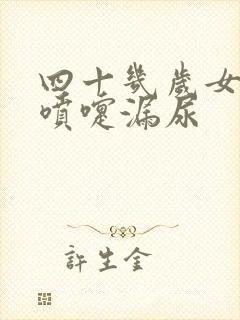 四十幾歲女
噴嚏漏尿
許生金